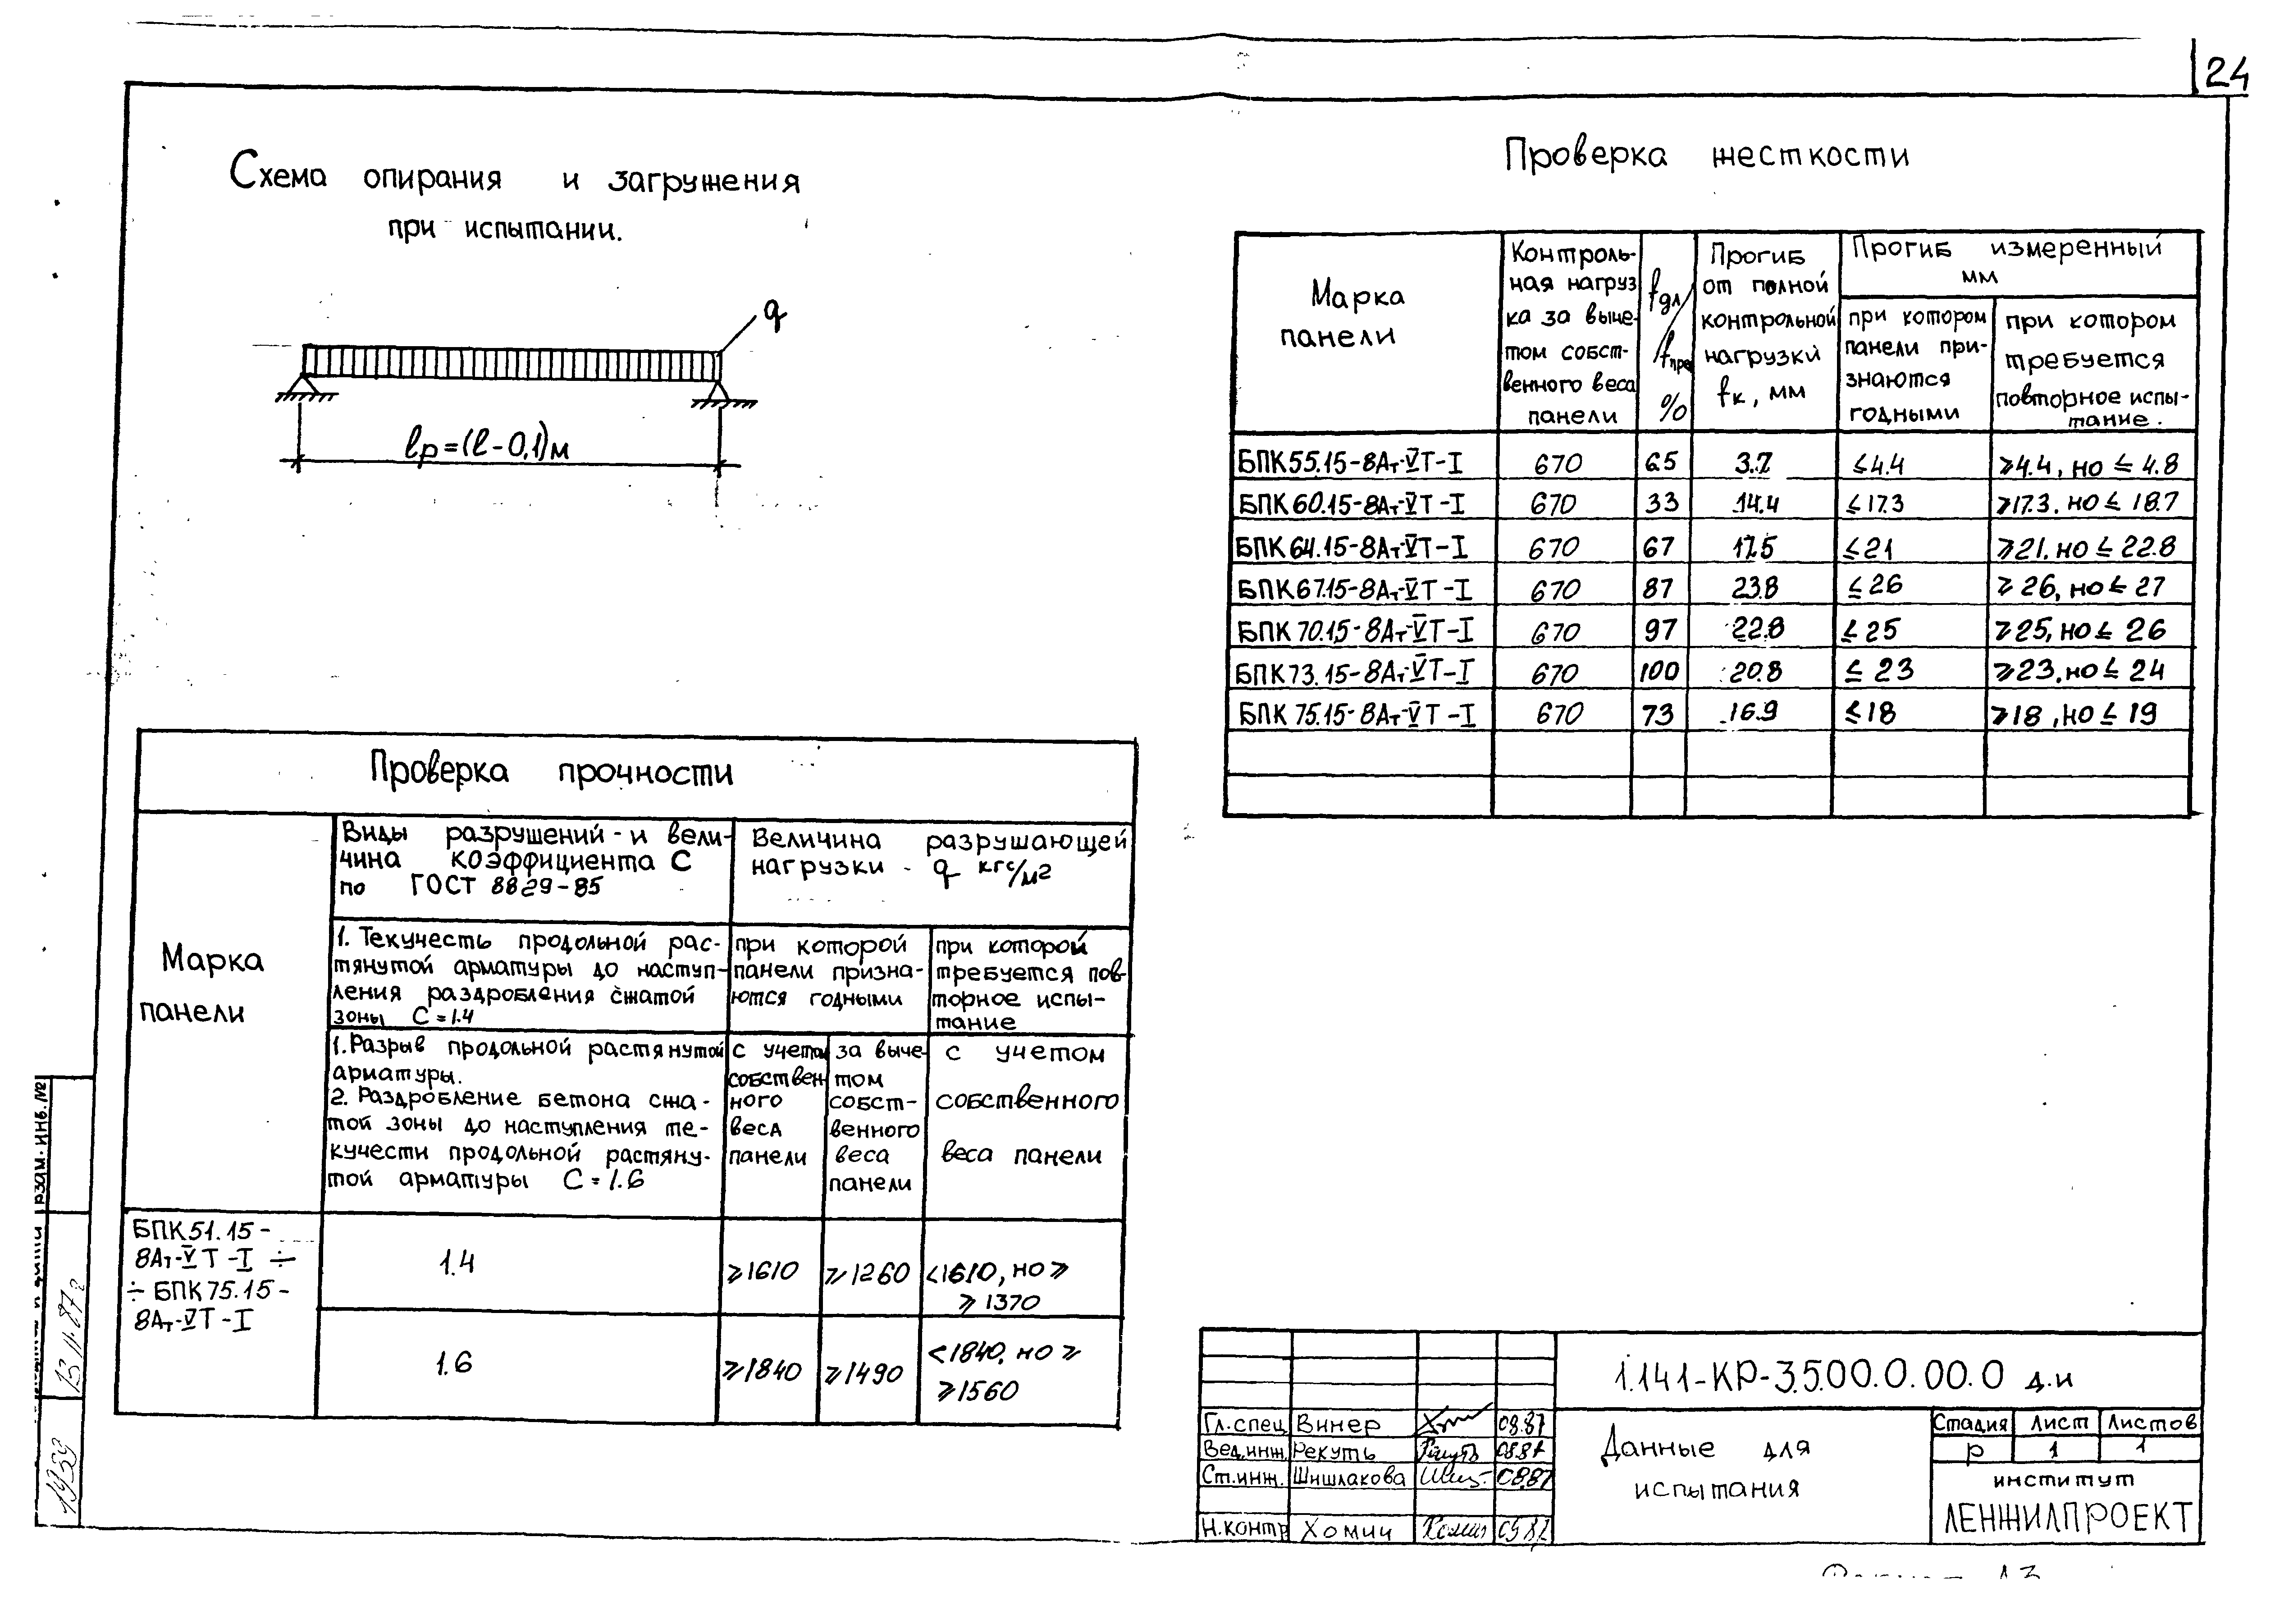 24
Схема опирания и загружения
при испытании.
q
lр=(l-0,1)м
Проверка жесткости
Марка
панели
Контроль-
ная нагруз
ка за выче-
том собст-
венного веса
панели
fдл/
fпред
%
Прогиб
от полной
контрольной
нагрузки
fк, мм
Прогиб измеренный
мм
при котором
панели при-
знаются
годными
при котором
требуется
повторное испы-
тание.
БПК55.15-8Ат-VТ-I 670 65 3.7 ≤4.4 ≥4.4, но ≤ 4.8
БПК60.15-8Ат-VТ-I 670 33 14.4 ≤17.3 ≥17.3, но ≤ 18.7
БПК64.15-8Ат-VТ-I 670 67 17.5 ≤21 ≥21, но ≤ 22.8
БПК67.15-8Ат-VТ-I 670 87 23.8 ≤26 ≥26, но ≤ 27
БПК70.15-8Ат-VТ-I 670 97 22.8 ≤25 ≥25, но ≤ 26
БПК73.15-8Ат-VТ-I 670 100 20.8 ≤23 ≥23, но ≤ 24
БПК75.15-8Ат-VТ-I 670 73 16.9 ≤18 ≥18, но ≤ 19
Проверка прочности
Марка
панели
Виды разрушений - и вели-
чина коэффициента С
по ГОСТ 8829-85
Величина разрушающей
нагрузки - q кгс/м2
1. Текучесть продольной рас-
тянутой арматуры до наступ-
ления раздробления сжатой
зоны С=1.4
при которой
панели призна-
ются годными
при которой
требуется пов-
торное испы-
тание
1. Разрыв продольной растянутой
арматуры.
2. Раздробление бетона сжа-
той зоны до наступления те-
кучести продольной растяну-
той арматуры С=1.6
с учетом
собствен
ного
веса
панели
за выче-
том
собст-
венного
веса
панели
с учетом
собственного
веса панели
БПК51.15-
8Ат-VТ-I ÷
÷ БПК75.15-
8Ат-VТ-I
1.4 ≥1610 ≥1260 <1610, но ≥
≥1370
1.6 ≥1840 ≥1490 <1840, но ≥
≥1560
Взам. инв. №
13.11.87г
1.141-КР-3.5.00.0.00.0 д.и
Гл.спец Винер 08.87
Вед.инж. Рекуть 08.87
Ст.инж. Шишлакова 08.87
Н.контр Хомич
Данные для
испытания
Стадия Лист Листов
Р 1 1
институт
ЛЕНЖИЛПРОЕКТ